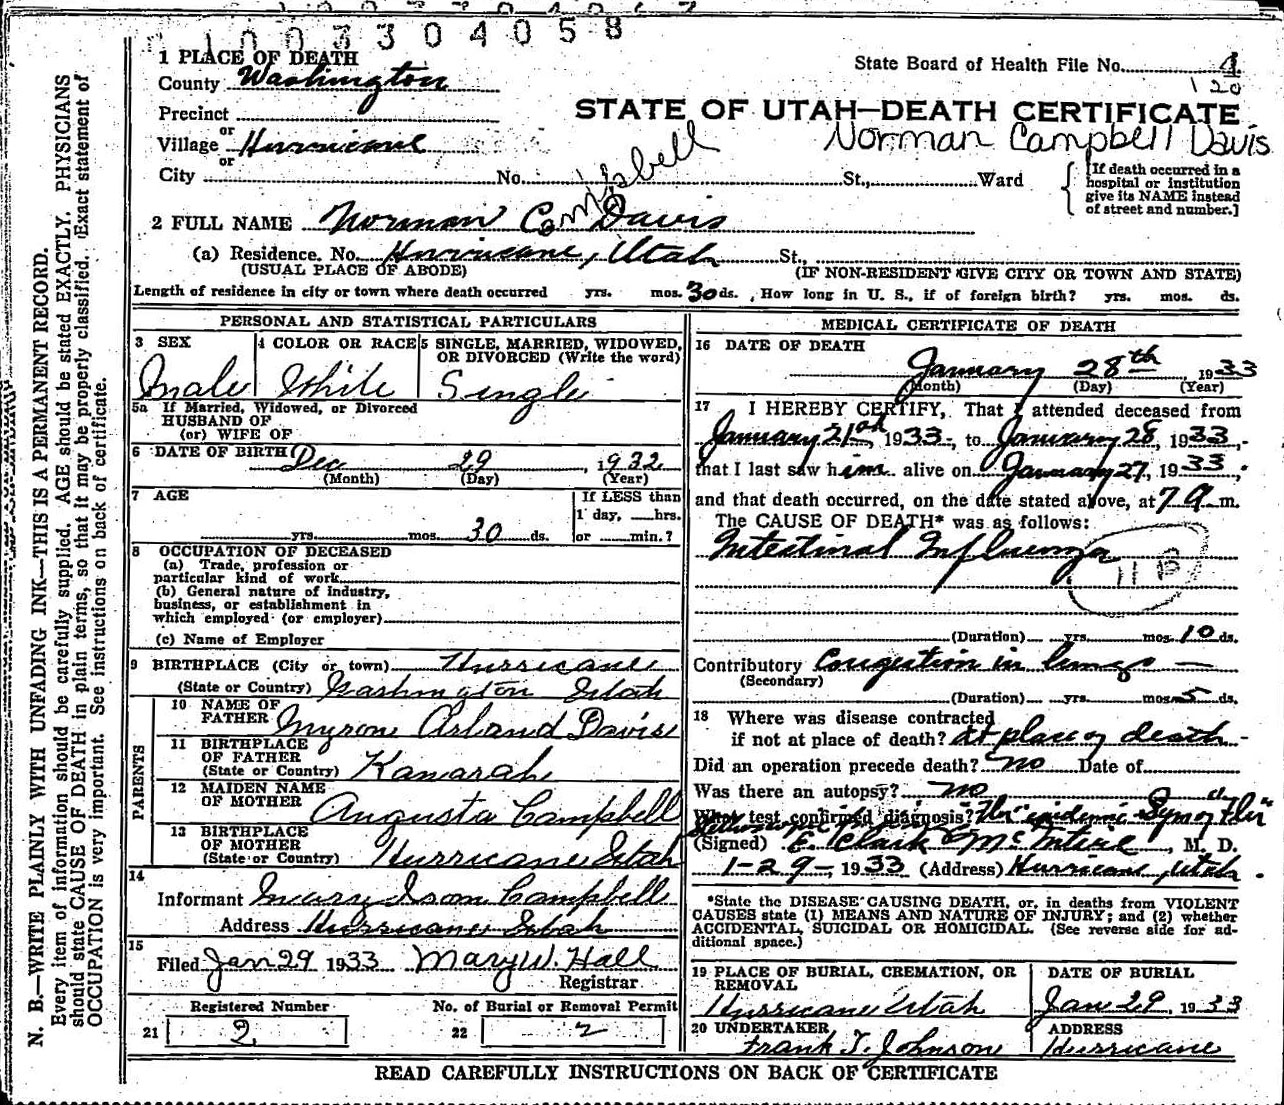 1003304058
1 PLACE OF DEATH
County Washington
State Board of Health File No. 4
120
Precinct
or
Village Hurricane
or
City No. St., Ward
STATE OF UTAH—DEATH CERTIFICATE
Norman Campbell Davis
[If death occurred in a
hospital or institution
give its NAME instead
of street and number.]
2 FULL NAME Norman Campbell Davis
(a) Residence. No. Hurricane, Utah St.,
(USUAL PLACE OF ABODE) (IF NON-RESIDENT GIVE CITY OR TOWN AND STATE)
Length of residence in city or town where death occurred yrs. mos. 30 ds. , How long in U. S., if of foreign birth? yrs. mos. ds.
PERSONAL AND STATISTICAL PARTICULARS
3 SEX 4 COLOR OR RACE 5 SINGLE, MARRIED, WIDOWED,
OR DIVORCED (Write the word)
Male White Single
5a If Married, Widowed, or Divorced
HUSBAND OF
(or) WIFE OF
6 DATE OF BIRTH Dec 29, 1932
(Month) (Day) (Year)
7 AGE If LESS than
1 day, hrs.
yrs. mos. 30 ds. or min.?
8 OCCUPATION OF DECEASED
(a) Trade, profession or
particular kind of work
(b) General nature of industry,
business, or establishment in
which employed (or employer)
(c) Name of Employer
9 BIRTHPLACE (City or town) Hurricane
(State or Country) Washington Utah
PARENTS
10 NAME OF
FATHER Myron Orland Davis
11 BIRTHPLACE
OF FATHER
(State or Country) Kanarah
12 MAIDEN NAME
OF MOTHER Augusta Campbell
13 BIRTHPLACE
OF MOTHER
(State or Country) Hurricane Utah
14
Informant Mary Isom Campbell
Address Hurricane Utah
15
Filed Jan 29 1933 Mary W. Hall
Registrar
Registered Number No. of Burial or Removal Permit
21 2 22 2
MEDICAL CERTIFICATE OF DEATH
16 DATE OF DEATH
January 28th, 1933
(Month) (Day) (Year)
17 I HEREBY CERTIFY, That I attended deceased from
January 21st, 1933, to January 28, 1933,
that I last saw him alive on January 27, 1933,
and that death occurred, on the date stated above, at 7 a m.
The CAUSE OF DEATH* was as follows:
Intestinal Influenza
11 B
(Duration) yrs. mos. 10 ds.
Contributory Congestion in lungs
(Secondary)
(Duration) yrs. mos. 5 ds.
18 Where was disease contracted
if not at place of death? At place of death
Did an operation precede death? no Date of
Was there an autopsy? no
What test confirmed diagnosis? epidemic Sym of "Flu"
(Signed) E. Clark McIntire, M. D.
1-29-, 1933 (Address) Hurricane, Utah.
*State the DISEASE CAUSING DEATH, or, in deaths from VIOLENT
CAUSES state (1) MEANS AND NATURE OF INJURY; and (2) whether
ACCIDENTAL, SUICIDAL OR HOMICIDAL. (See reverse side for ad-
ditional space.)
19 PLACE OF BURIAL, CREMATION, OR
REMOVAL
Hurricane Utah
DATE OF BURIAL
Jan 29, 1933
20 UNDERTAKER
Frank T. Johnson
ADDRESS
Hurricane
READ CAREFULLY INSTRUCTIONS ON BACK OF CERTIFICATE
N. B.—WRITE PLAINLY WITH UNFADING INK—THIS IS A PERMANENT RECORD.
Every item of information should be carefully supplied. AGE should be stated EXACTLY. PHYSICIANS
should state CAUSE OF DEATH in plain terms, so that it may be properly classified. Exact statement of
OCCUPATION is very important. See instructions on back of certificate.